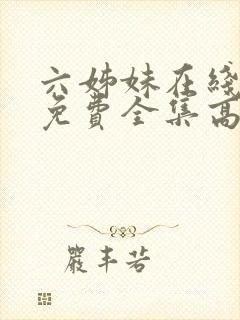 六姊妹在綫
免費全集高
嚴丰若